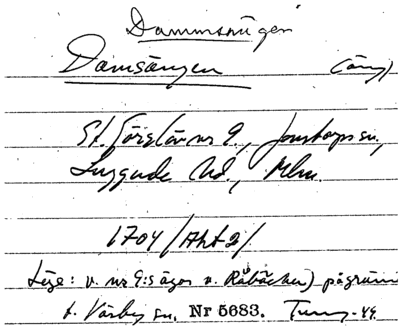 Dammsängen
Damsängen (äng)
St. Görslöv nr 9, Jonstorps sn,
Luggude hd, Mlm.
1704 /Akt 2/
Läge: v. nr 9:s ägor v. Råbäcken) på gräns
t. Väsby sn. Nr 5683.